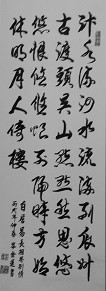 汴水流泗水流流到瓜州
古渡頭吴山點點愁思悠
悠恨悠悠恨到歸時方始
休明月人倚樓
白居易長相思